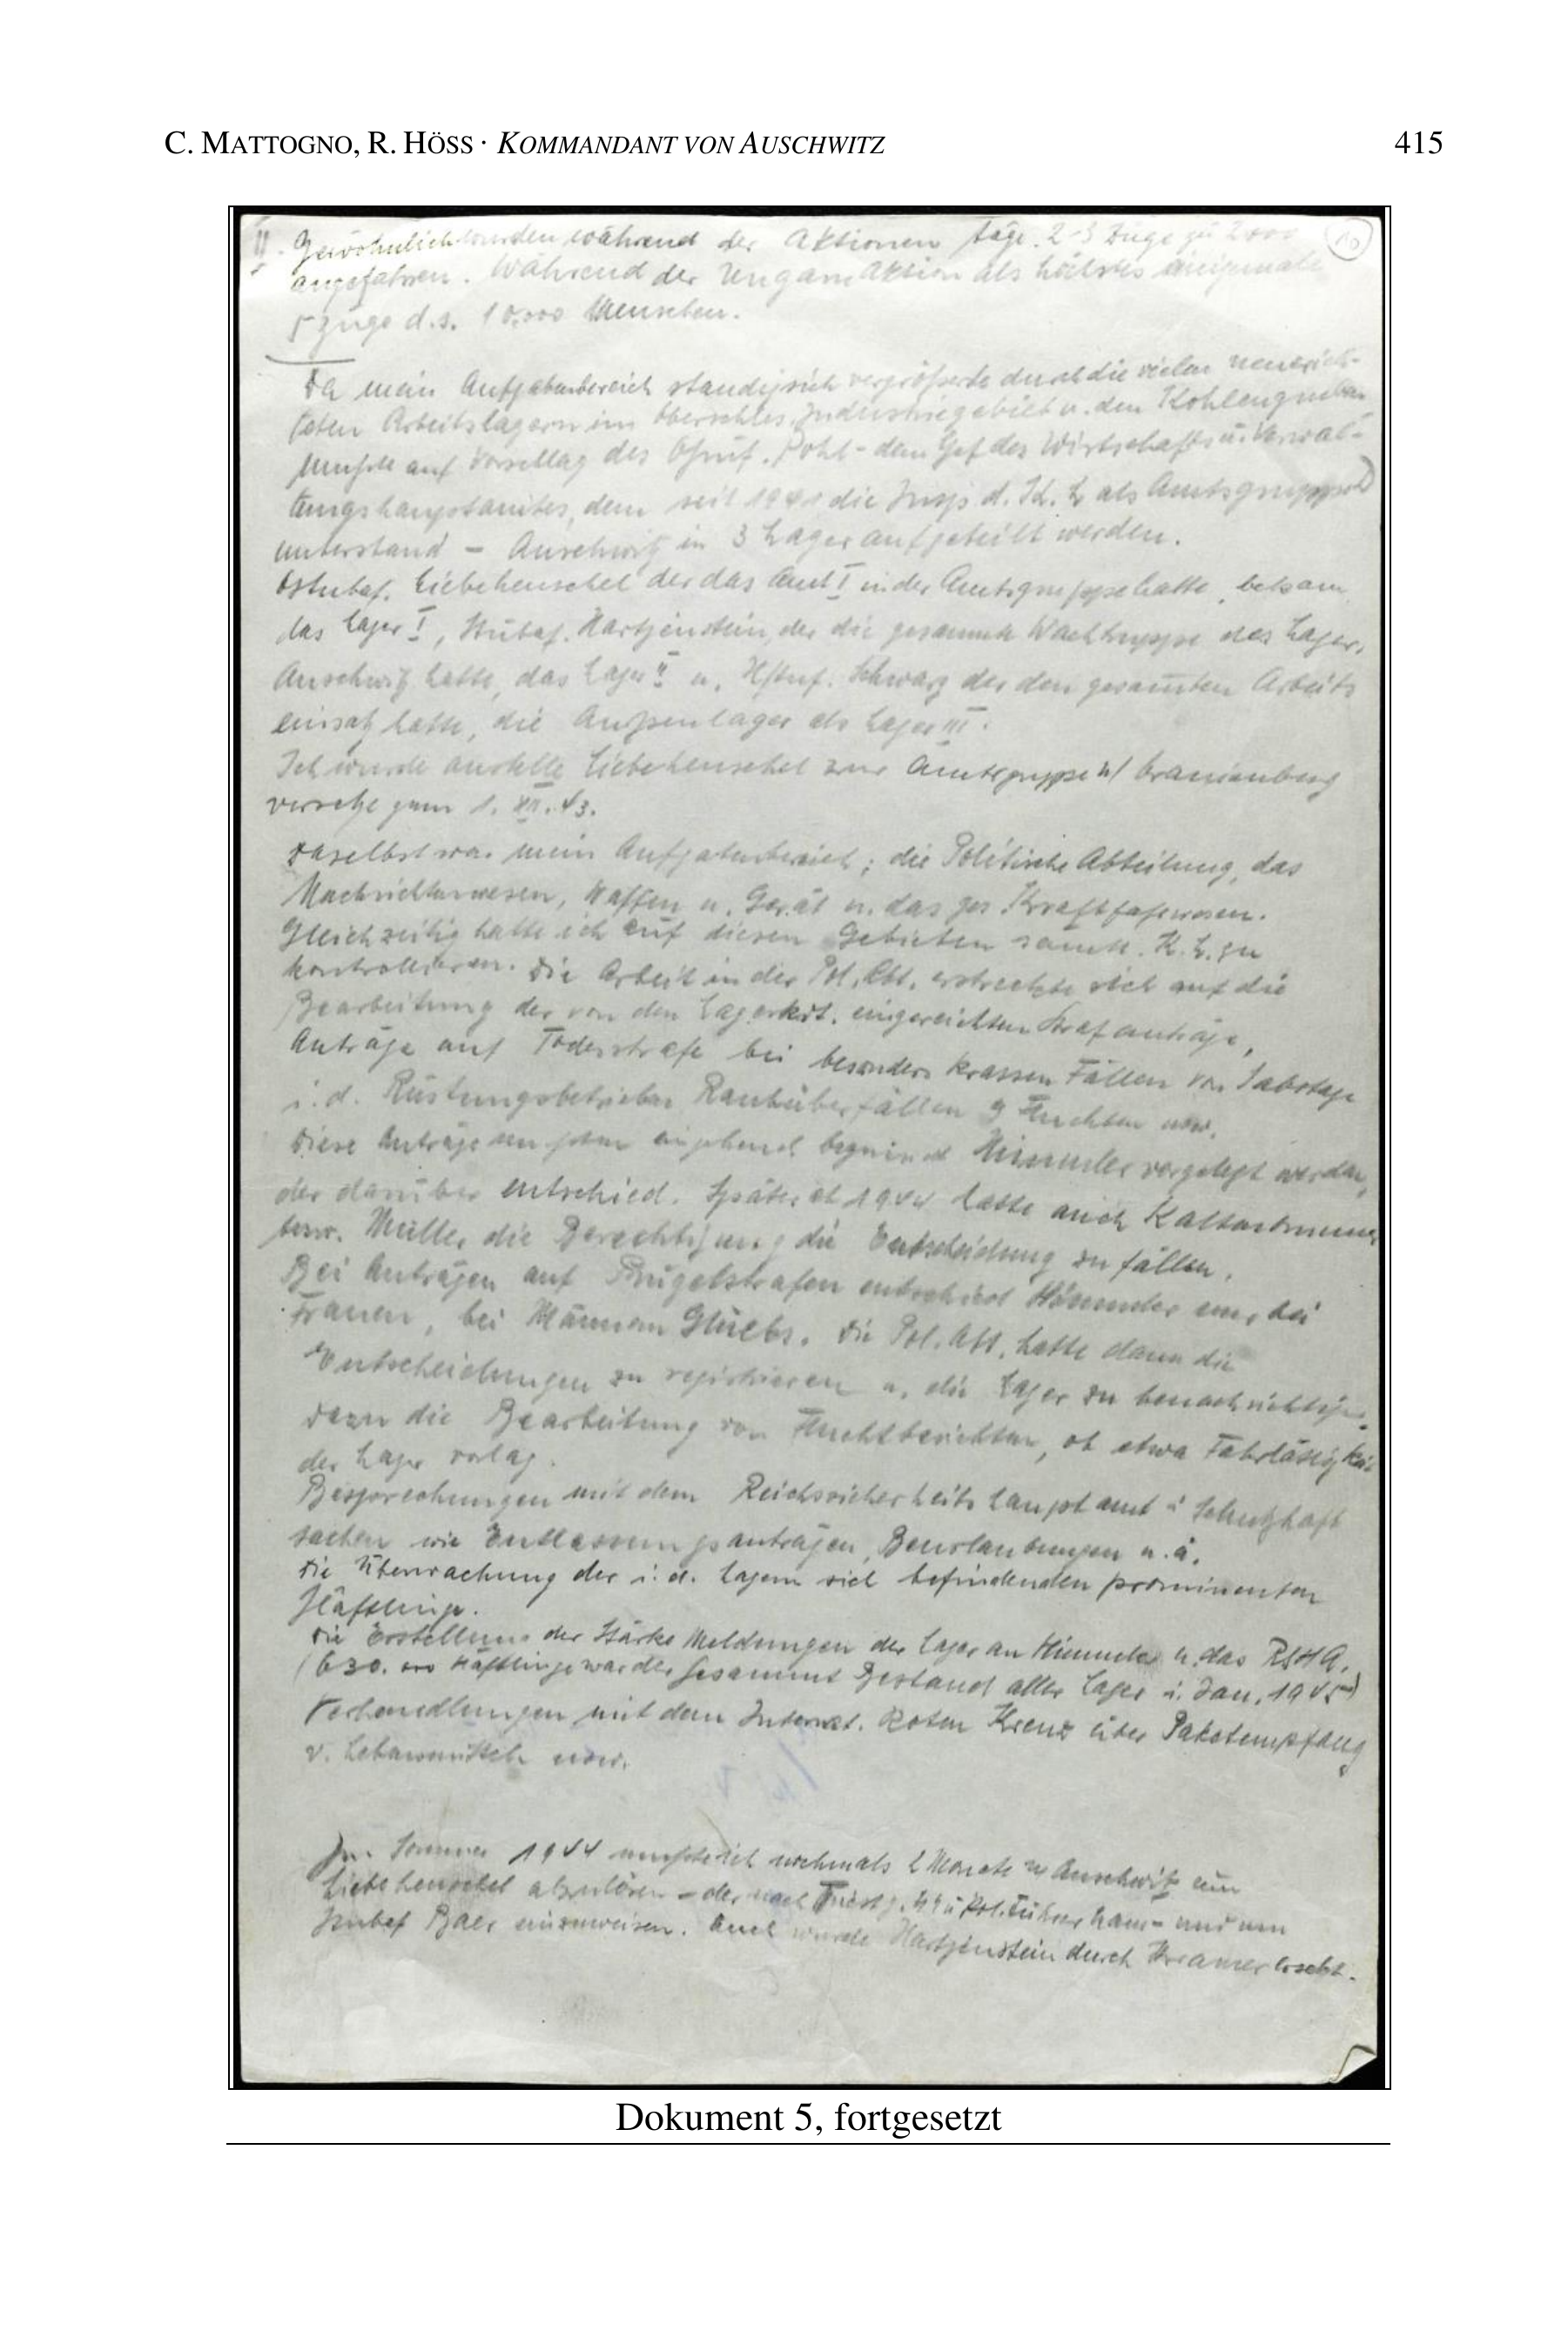 C. MATTOGNO, R. HÖSS · KOMMANDANT VON AUSCHWITZ 415
10
Gewöhnlich wurden während der Aktionen tägl. 2-3 Züge zu 2000
angefahren. Während der Ungarn Aktion als höchstes einigemale
5 Züge d.s. 10,000 Menschen.
Da mein Aufgabenbereich standig sich vergrößerte durch die vielen neuerich-
teten Arbeitslagern im Oberschles. Industriegebiet u. den Kohlengruben
mußte auf Vorschlag des Ogruf. Pohl - dem Chef des Wirtschafts u. Verwal-
tungshauptamtes, dem seit die Insp. d. K.L. als Amtsgruppe D
unterstand - Auschwitz in 3 Lager aufgeteilt werden.
Ostubaf. Liebehenschel der das Amt I in der Amtsgruppe hatte, bekam
das Lager I, Stubaf. Hartjenstein, der die gesammte Wachtruppe des Lager.
Auschwitz hatte, das Lager II u. H/stuf. Schwarz der den gesamten Arbeits
einsatz hatte, die Außenlager als Lager III.
Ich wurde anstelle Liebehenschel zur Amtsgruppe Oranienburg
versetzt zum 1. XII. 43.
Daselbst war mein Aufgabenbereich; die Politische Abteilung, das
Nachrichtenwesen, Waffen u. Gerät u. das ges. Kraftfahrwesen.
Gleichzeitig hatte ich auf diesen Gebieten sämtl. K.L. zu
kontrollieren. Die Arbeit in der Pol. Abt. erstreckte sich auf die
Bearbeitung der von den Lagerkdt. eingereichten Strafanträge,
Anträge auf Todesstrafe bei besonders krassen Fällen von Sabotage
i. d. Rüstungsbetrieben Raubüberfällen Fluchten usw.
Diese Anträge mußten eingehend begründ Himmler vorgelegt werden,
der darüber entschied. Später ab 1944 hatte auch Kaltenbrunner
bezw. Müller die Berechtigung die Entscheidung zu fällen.
Bei Anträgen auf Prügelstrafen entschied Himmler nur bei
Frauen, bei Männern Glücks. Die Pol. Abt. hatte dann die
Entscheidungen zu registrieren u. die Lager zu benachrichtigen.
Dazu die Bearbeitung von Fluchtberichten, ob etwa Fahrlässigkeit
der Lager vorlag.
Besprechungen mit dem Reichssicherheitshauptamt i. Schutzhaft
sachen wie Entlassungsanträgen, Beurlaubungen u. ä.
Die Überwachung der i. d. Lagern sich befindenden prominenten
Häftlinge.
Die Erstellung der Stärke Meldungen der Lager an Himmler u. das RSHA.
(630.000 Häftlinge war der Gesammt Bestand aller Lager i. Jan. 1945)
Verhandlungen mit dem Internat. Roten Kreuz über Paketempfang
v. Lebensmitteln usw.
Im Sommer 1944 mußte ich nochmals 2 Monate n. Auschwitz um
Liebehenschel abzulösen - der nach Triest z. Führer kam - und um
Stubaf Baer einzuweisen. Auch wurde Hartjenstein durch Kramer ersetzt.
Dokument 5, fortgesetzt